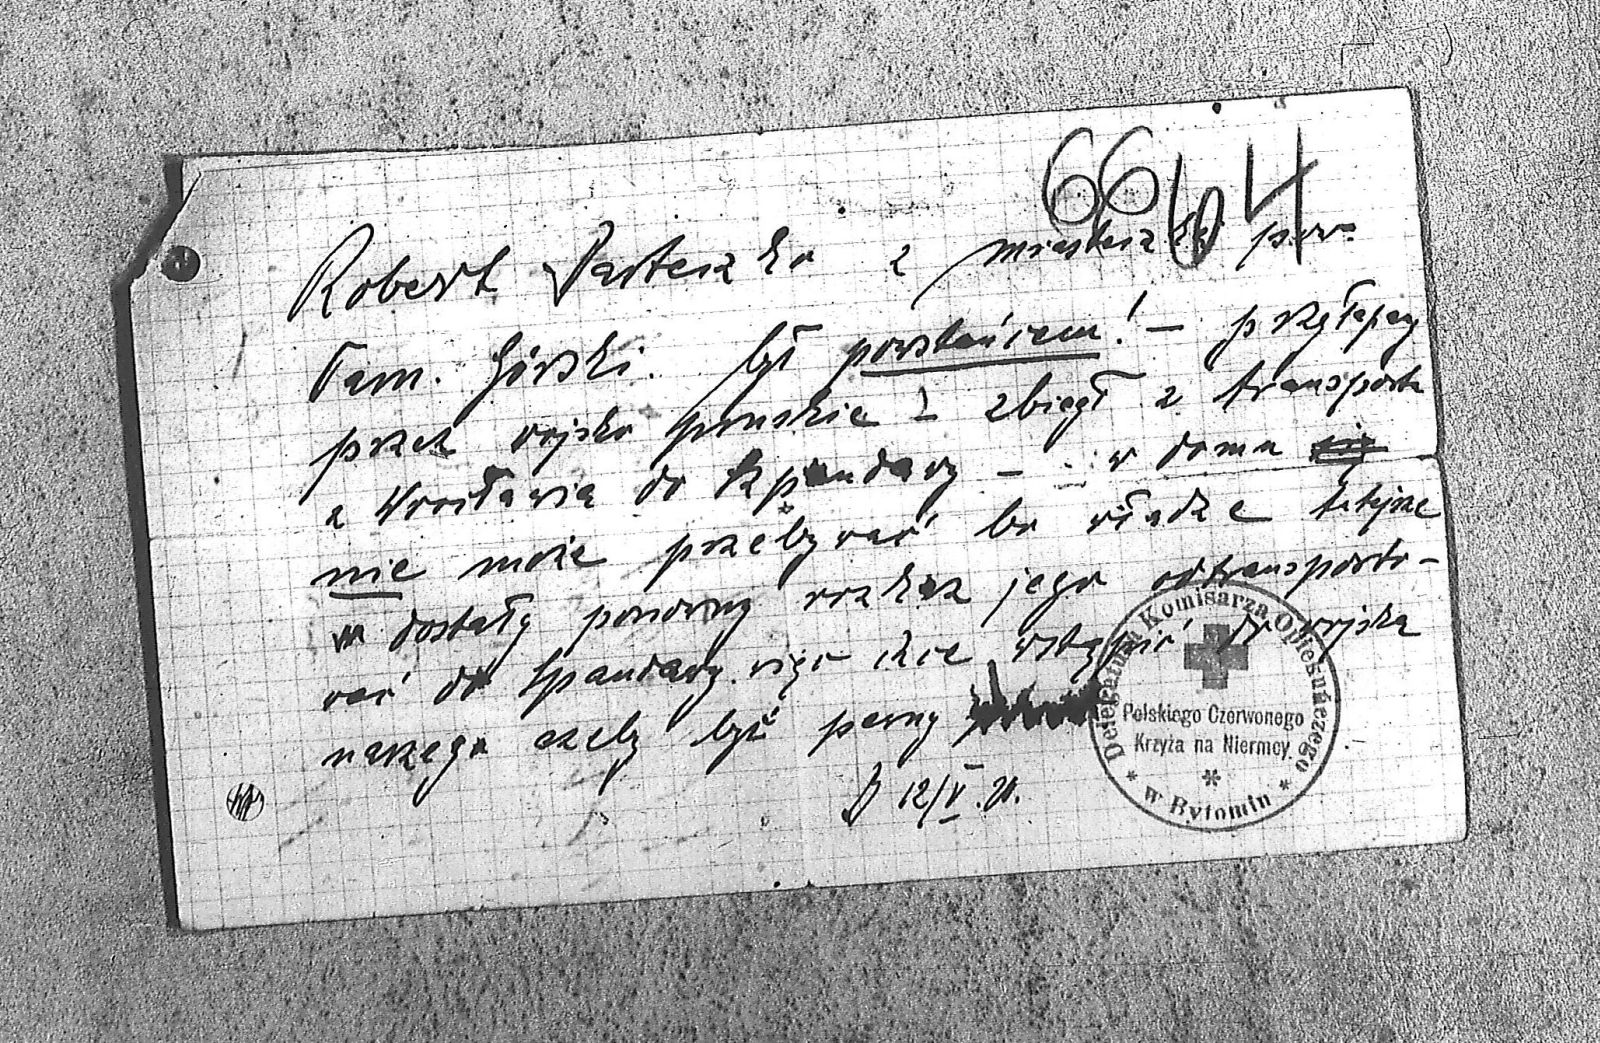 6664
Robert Pasterzka z miasteczka pow.
Tarn. Górski. był powstańcem! — przyłapany
przez wojsko pruskie — zbiegł z transportu
z Wrocławia do Szpandawy — w domu
nie może przebywać bo władze tutejsze
dostały ponowny rozkaz jego odtransporto-
wać do Spandawy. więc chce wstąpić do wojska
naszego ażeby być pewny
B 12/V. 20.
Delegatura Komisarza Opiekuńczego
Polskiego Czerwonego
Krzyża na Niermcy
* w Bytomiu *